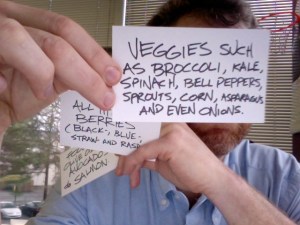 VEGGIES SUCH
AS BROCCOLI, KALE,
SPINACH, BELL PEPPERS,
SPROUTS, CORN, ASPARAGUS
AND EVEN ONIONS.
ALL
BERRIES
(BLACK-, BLUE-,
STRAW- AND RASP
AVOCADO
SALMON